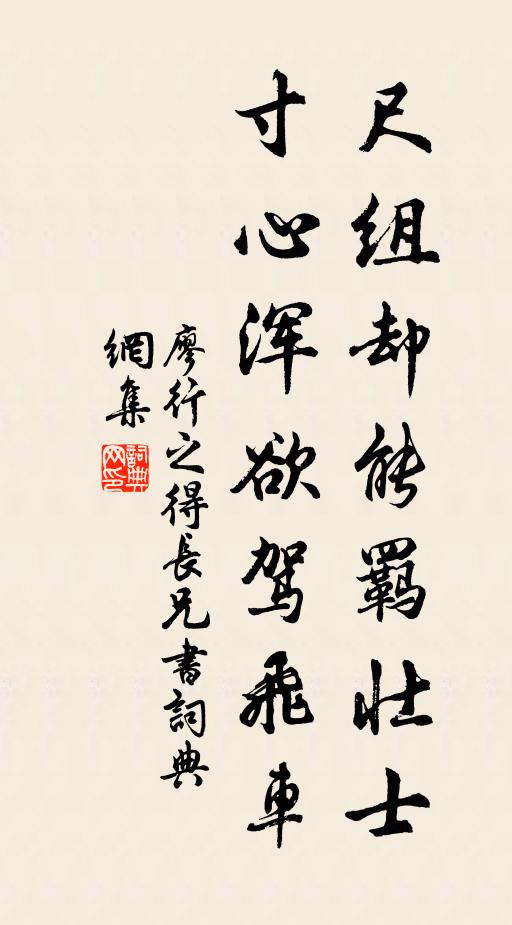 尺组却能羁壮士
寸心浑欲驾飛車
廖行之得長兄書詞典
網集
詞典
网印